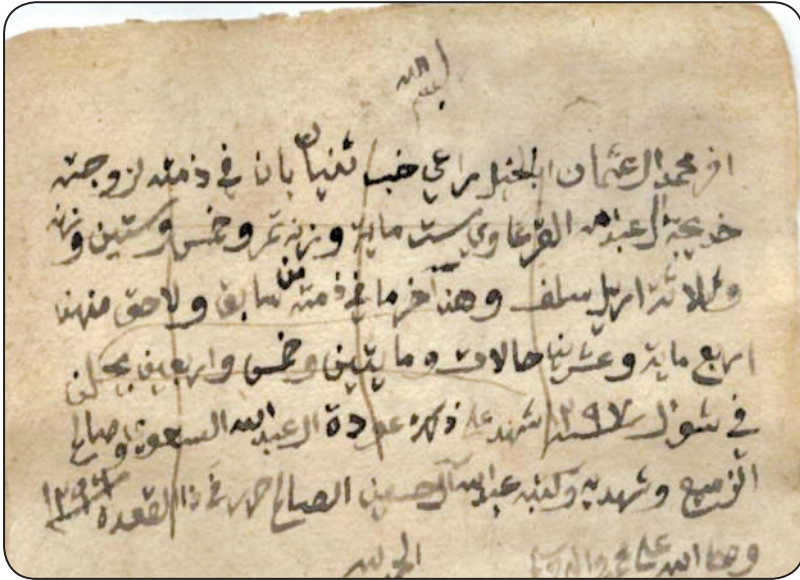 بسم الله
اقر محمد العثمان الجخيل راعي خب ثنيان بان في ذمته لزوجته
خديجة العبدالله القرعاوي ست ماية وزنة تمر وخمس وستين وزنه
وثلاثة اريل سلف وهذا آخر ما في ذمته من سابق ولاحق منهن
اربع ماية وعشرين حالات ومايتين وخمس واربعين يحلن
في شوال ١٢٩٧ شهد على ذلك عودة العبدالله السعودي وصالح
الرميح وشهد به وكتبه عبدالله الحسين الصالح حرر في ذا القعدة ١٢٩٦
وصلى الله على محمد وآله وسلم
الحمد لله